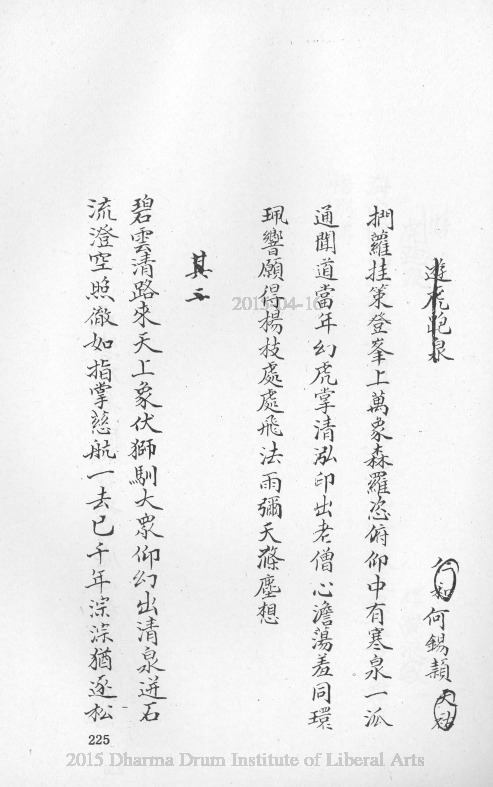 遊虎跑泉
何錫頴
捫蘿拄策登峯上萬象森羅恣俯仰中有寒泉一派
通聞道當年幻虎掌清泓印出老僧心澹蕩羞同環
珮響願得楊枝處處飛法雨彌天滌塵想
其二
碧雲清路來天上象伏獅馴大衆仰幻出清泉迸石
流澄空照澈如指掌慈航一去已千年淙淙猶逐松
225
2015-04-16
2015 Dharma Drum Institute of Liberal Arts